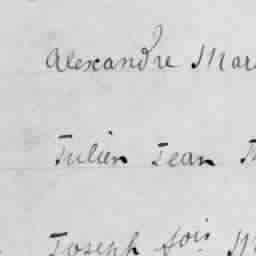 Alexandre Mar
Julien Jean
Joseph fois